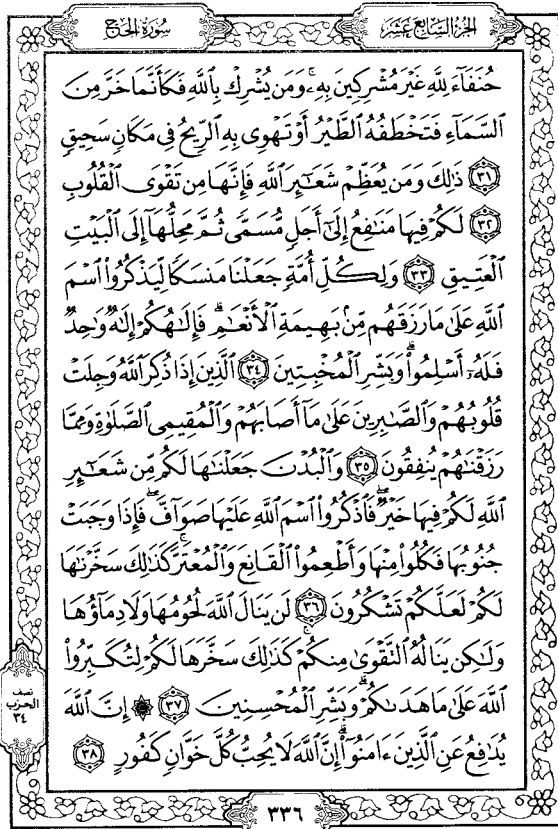 سُورَةُ الحَجِّ
الجُزْءُ السَّابِعَ عَشَرَ
حُنَفَآءَ لِلَّهِ غَيْرَ مُشْرِكِينَ بِهِۦۚ وَمَن يُشْرِكْ بِٱللَّهِ فَكَأَنَّمَا خَرَّ مِنَ
ٱلسَّمَآءِ فَتَخْطَفُهُ ٱلطَّيْرُ أَوْ تَهْوِى بِهِ ٱلرِّيحُ فِى مَكَانٍ سَحِيقٍ
﴿٣١﴾ ذَٰلِكَ وَمَن يُعَظِّمْ شَعَٰٓئِرَ ٱللَّهِ فَإِنَّهَا مِن تَقْوَى ٱلْقُلُوبِ
﴿٣٢﴾ لَكُمْ فِيهَا مَنَٰفِعُ إِلَىٰٓ أَجَلٍ مُّسَمًّى ثُمَّ مَحِلُّهَآ إِلَى ٱلْبَيْتِ
ٱلْعَتِيقِ ﴿٣٣﴾ وَلِكُلِّ أُمَّةٍ جَعَلْنَا مَنسَكًا لِّيَذْكُرُوا۟ ٱسْمَ
ٱللَّهِ عَلَىٰ مَا رَزَقَهُم مِّنۢ بَهِيمَةِ ٱلْأَنْعَٰمِۗ فَإِلَٰهُكُمْ إِلَٰهٌ وَٰحِدٌ
فَلَهُۥٓ أَسْلِمُوا۟ۗ وَبَشِّرِ ٱلْمُخْبِتِينَ ﴿٣٤﴾ ٱلَّذِينَ إِذَا ذُكِرَ ٱللَّهُ وَجِلَتْ
قُلُوبُهُمْ وَٱلصَّٰبِرِينَ عَلَىٰ مَآ أَصَابَهُمْ وَٱلْمُقِيمِى ٱلصَّلَوٰةِ وَمِمَّا
رَزَقْنَٰهُمْ يُنفِقُونَ ﴿٣٥﴾ وَٱلْبُدْنَ جَعَلْنَٰهَا لَكُم مِّن شَعَٰٓئِرِ
ٱللَّهِ لَكُمْ فِيهَا خَيْرٌۖ فَٱذْكُرُوا۟ ٱسْمَ ٱللَّهِ عَلَيْهَا صَوَآفَّۖ فَإِذَا وَجَبَتْ
جُنُوبُهَا فَكُلُوا۟ مِنْهَا وَأَطْعِمُوا۟ ٱلْقَانِعَ وَٱلْمُعْتَرَّۚ كَذَٰلِكَ سَخَّرْنَٰهَا
لَكُمْ لَعَلَّكُمْ تَشْكُرُونَ ﴿٣٦﴾ لَن يَنَالَ ٱللَّهَ لُحُومُهَا وَلَا دِمَآؤُهَا
وَلَٰكِن يَنَالُهُ ٱلتَّقْوَىٰ مِنكُمْۚ كَذَٰلِكَ سَخَّرَهَا لَكُمْ لِتُكَبِّرُوا۟
ٱللَّهَ عَلَىٰ مَا هَدَىٰكُمْۗ وَبَشِّرِ ٱلْمُحْسِنِينَ ﴿٣٧﴾ ۞ إِنَّ ٱللَّهَ
يُدَٰفِعُ عَنِ ٱلَّذِينَ ءَامَنُوٓا۟ۗ إِنَّ ٱللَّهَ لَا يُحِبُّ كُلَّ خَوَّانٍ كَفُورٍ ﴿٣٨﴾
نصف
الحزب
٣٤
٣٣٦